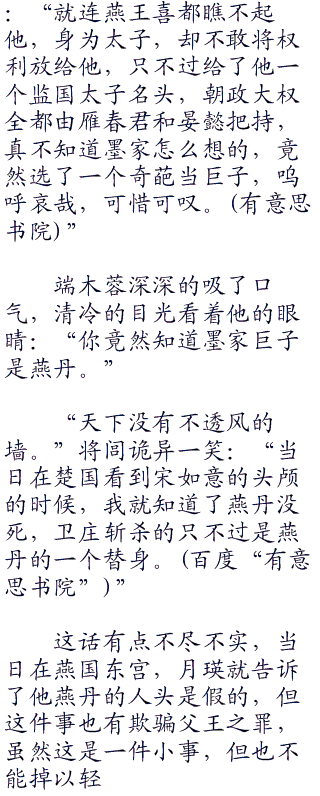 ：“就连燕王喜都瞧不起
他，身为太子，却不敢将权
利放给他，只不过给了他一
个监国太子名头，朝政大权
全都由雁春君和晏懿把持，
真不知道墨家怎么想的，竟
然选了一个奇葩当巨子，呜
呼哀哉，可惜可叹。(有意思
书院)”
端木蓉深深的吸了口
气，清冷的目光看着他的眼
睛：“你竟然知道墨家巨子
是燕丹。”
“天下没有不透风的
墙。”将闾诡异一笑：“当
日在楚国看到宋如意的头颅
的时候，我就知道了燕丹没
死，卫庄斩杀的只不过是燕
丹的一个替身。(百度“有意
思书院”)”
这话有点不尽不实，当
日在燕国东宫，月瑛就告诉
了他燕丹的人头是假的，但
这件事也有欺骗父王之罪，
虽然这是一件小事，但也不
能掉以轻